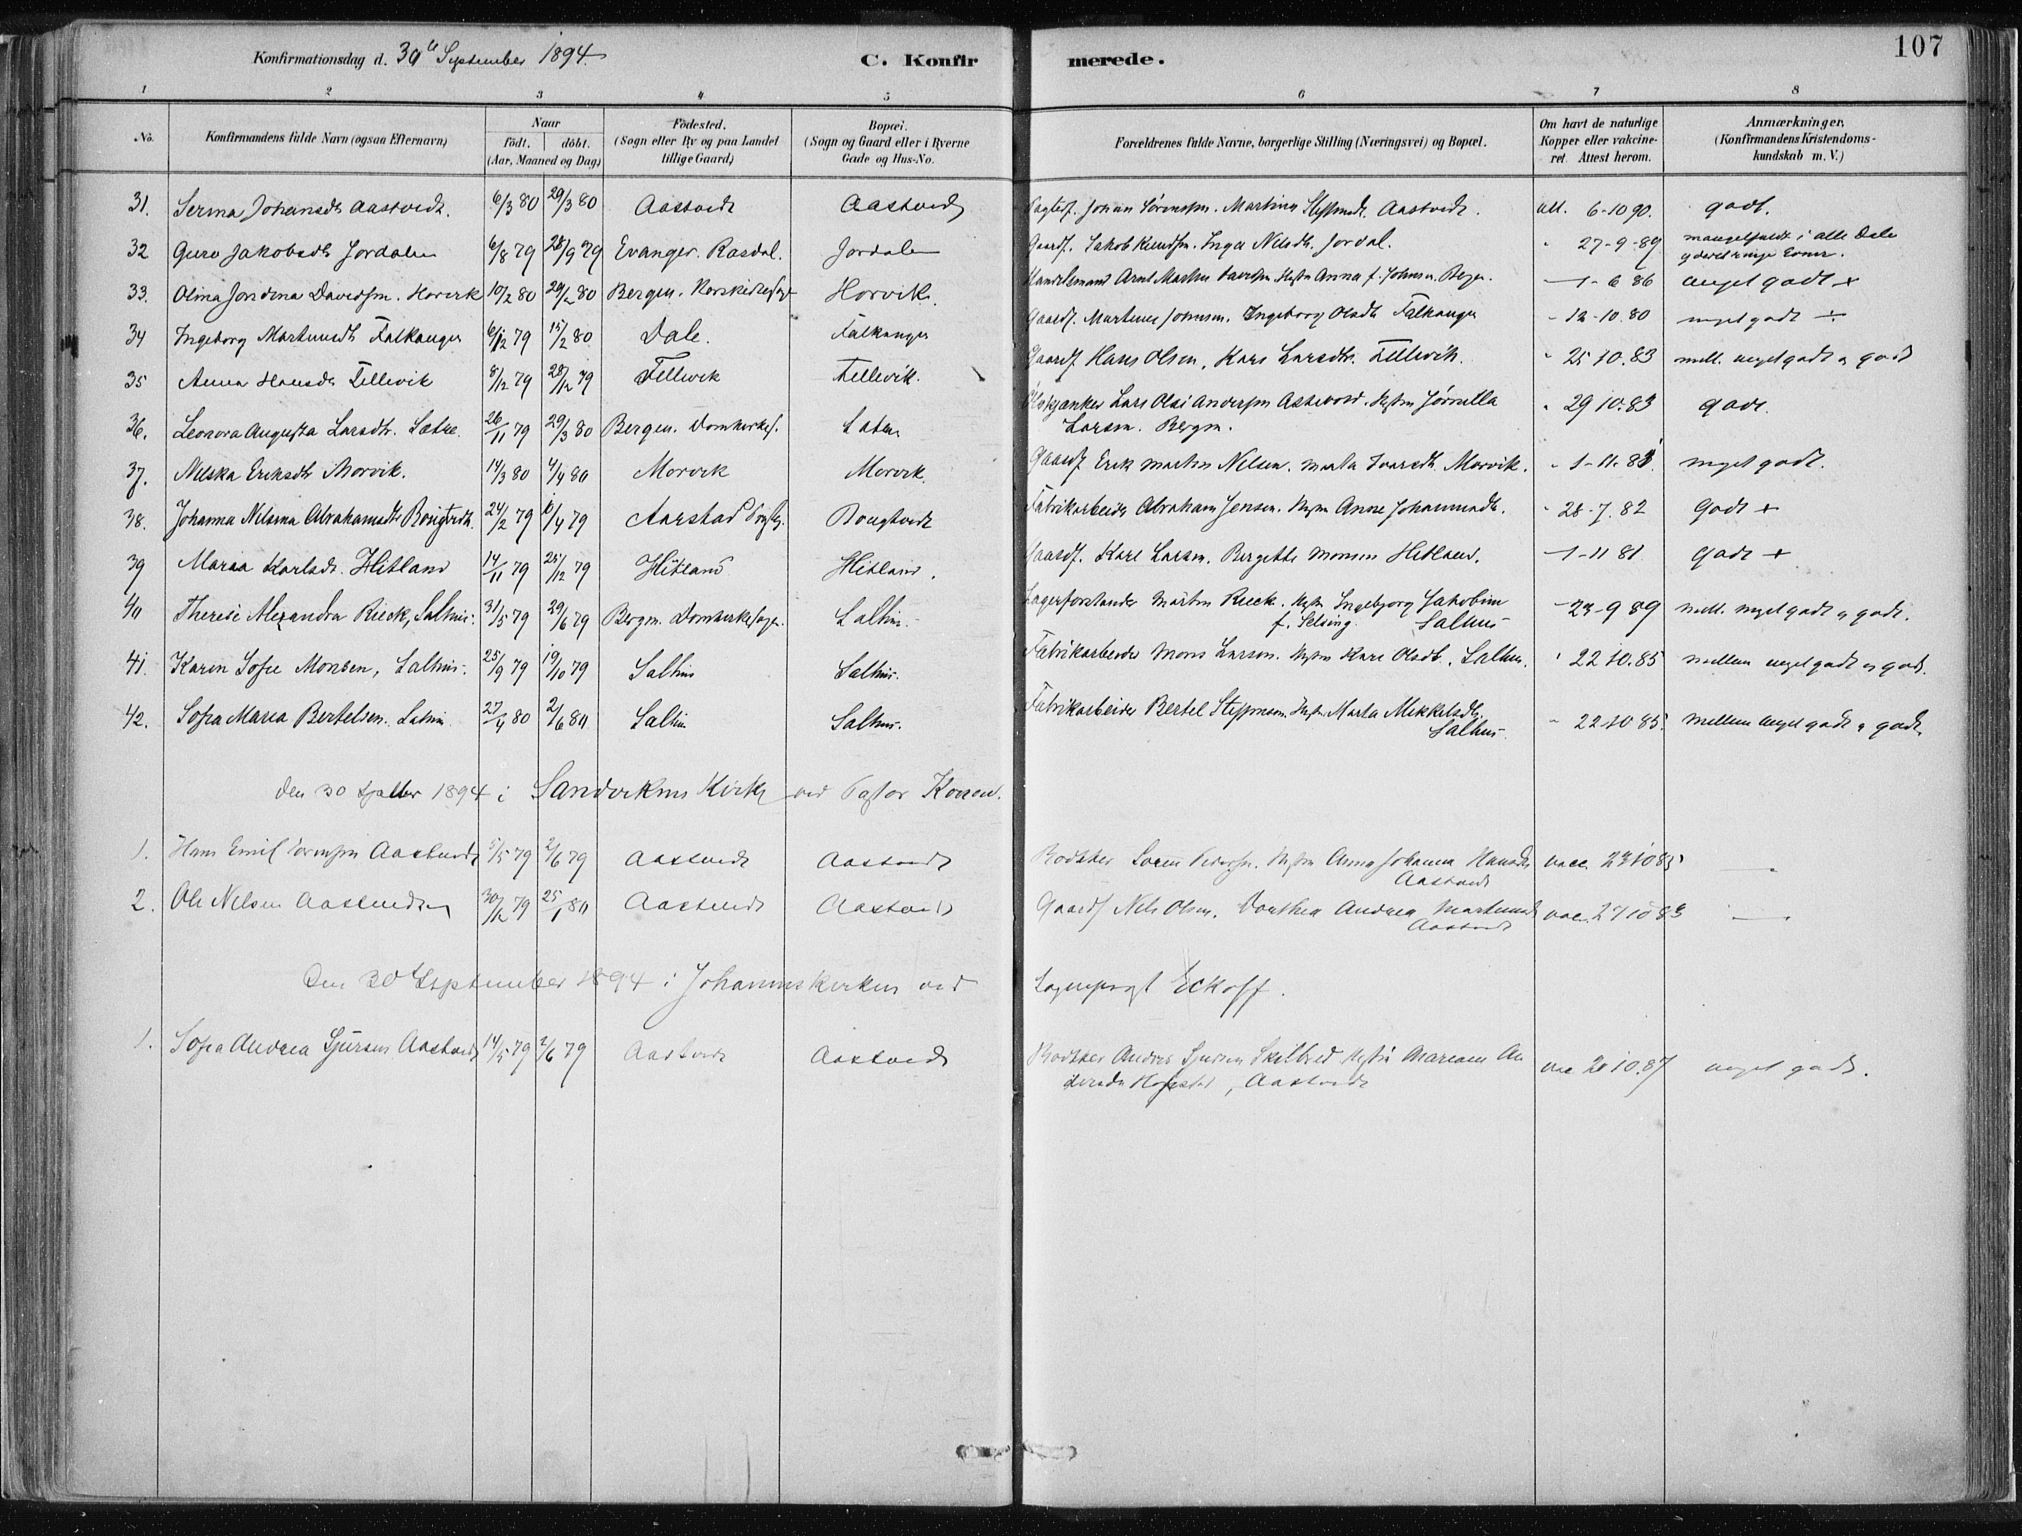 107
Konfirmationsdag d. 30te September 1894.
C. Konfirmerede.
1 2 3 4 5 6 7 8
No.
Konfirmandens fulde Navn (ogsaa Efternavn)
Naar
födt. döbt.
(Aar, Maaned og Dag)
Födested.
(Sogn eller By og paa Landet
tillige Gaard)
Bopæl.
(Sogn og Gaard eller i Byerne
Gade og Hus-No.
Forældrenes fulde Navne, borgerlige Stilling (Næringsvei) og Bopæl.
Om havt de naturlige
Kopper eller vakcine-
ret. Attest herom.
Anmærkninger,
(Konfirmandens Kristendoms-
kundskab m. V.)
31. Serina Johansdt Aastvedt. 6/3 80 29/3 80 Aastvedt Aastvedt Johan Sørensen. Martina Aastvedt. att. 6-10 90. godt.
32 Guro Jakobsdt Jordalen 6/8 79 28/9 79 Evanger. Rasdal. Jordalen Gaardf. Jakob Knudsen. Inga Nilsdt. Jordal. " 27-9-89 mangelfuldt i alle Dele
yderst ringe Evner.
33. Olina Jondina Davidsen. Horvik 10/2 80 29/2 80 Bergen. Korskirkesogn Horvik. Handelsmand Arnt Martin Davidsen Hustru Anna f. Johnsen. Bergen. -1-6 86 meget godt +
34 Ingeborg Martinusdt Falkanger 6/12 79 15/2 80 Dale. Falkanger Gaardf. Martinus Johnsen. Ingeborg Olsdt Falkanger - 12-10.80 meget godt
35 Anna Hansdt Tellevik 8/12 79 28/12 79 Tellevik Tellevik. Gaardf Hans Olsen, Kari Larsdtr. Tellevik. " 25 10.83 mell. meget godt og godt
36. Leonora Augusta Larsdtr. Sætre. 26/11 79 29/3 80 Bergen. Domkirkes. Lars Olai Andersen Hustru
Larsen. Bergen. " 29 10.83 godt.
37. Nilska Eriksdt Morvik. 14/3 80 4/4 80 Morvik Morvik. Gaardf Erik Martin Nilsen. Marta Ivarsdt. Morvik. - 1-11.83 meget godt.
38. Johanna Nilsina Abrahamsdt Rougtvedt. 24/2 79 /4 79 Aarstad Rougtvedt Fabrikarbeider Abraham Jensen. Hustru Anne Johannesdt. - 28-7.82 Godt +
39 Maria Karlsdt. Hitland 14/11 79 25/12 79 Hitland Hitland. Gaardf. Karl Larsen. Bergette Monsen Hitland. -1-11 81 Godt +
40 Therese Alexandra Rieck, Salhus. 31/5 79 29/6 79 Bergen. Domkirkesogn. Salhus. Lagerforstander Martin Rieck. Hustru Ingebjorg Jakobine
f. Selsing. Salhus - 23-9 89 mell. meget godt og godt.
41. Karen Sofie Monsen, Salhus. 25/9 79 19/10 79 Salhus Salhus. Fabrikarbeider Mons Larsen. Hustru Kari Olsdt. Salhus. " 22 10.85 mellem meget godt og godt.
42. Sofia Maria Bertelsen. Salhus 27/4 80 2/6 80 Salhus Salhus. Fabrikarbeider Bertel Hustru Marta Mikkelsdt.
Salhus. - 22 10 85. mellem meget godt og godt.
den 30 1894 i Sandvikens Kirke ved Pastor
1. Hans Emil Aastvedt 5/5 79 2/6 79 Aastvedt Aastvedt Bødker Søren Hustru Anna Johanna Hansdt
Aastvedt vacc. 23 10 83 —
2. Ole Nilsen Aastvedt 30/12 79 25/1 80 Aastvedt Aastvedt Gaardf Nils Olsen. Dorthea Andrea Martinusdt
Aastvedt vac. 27 10 83 —
Den 30te September 1894 i Johanneskirken ved Sogneprest Eckoff.
1. Sofia Andrea Sjursen Aastvedt 14/5 79 2/6 79 Aastvedt Aastvedt Bødker Anders Sjursen Skilbred Hustru Mariane An
dersdt Hopstad, Aastvedt vac 20 10.87 meget godt.